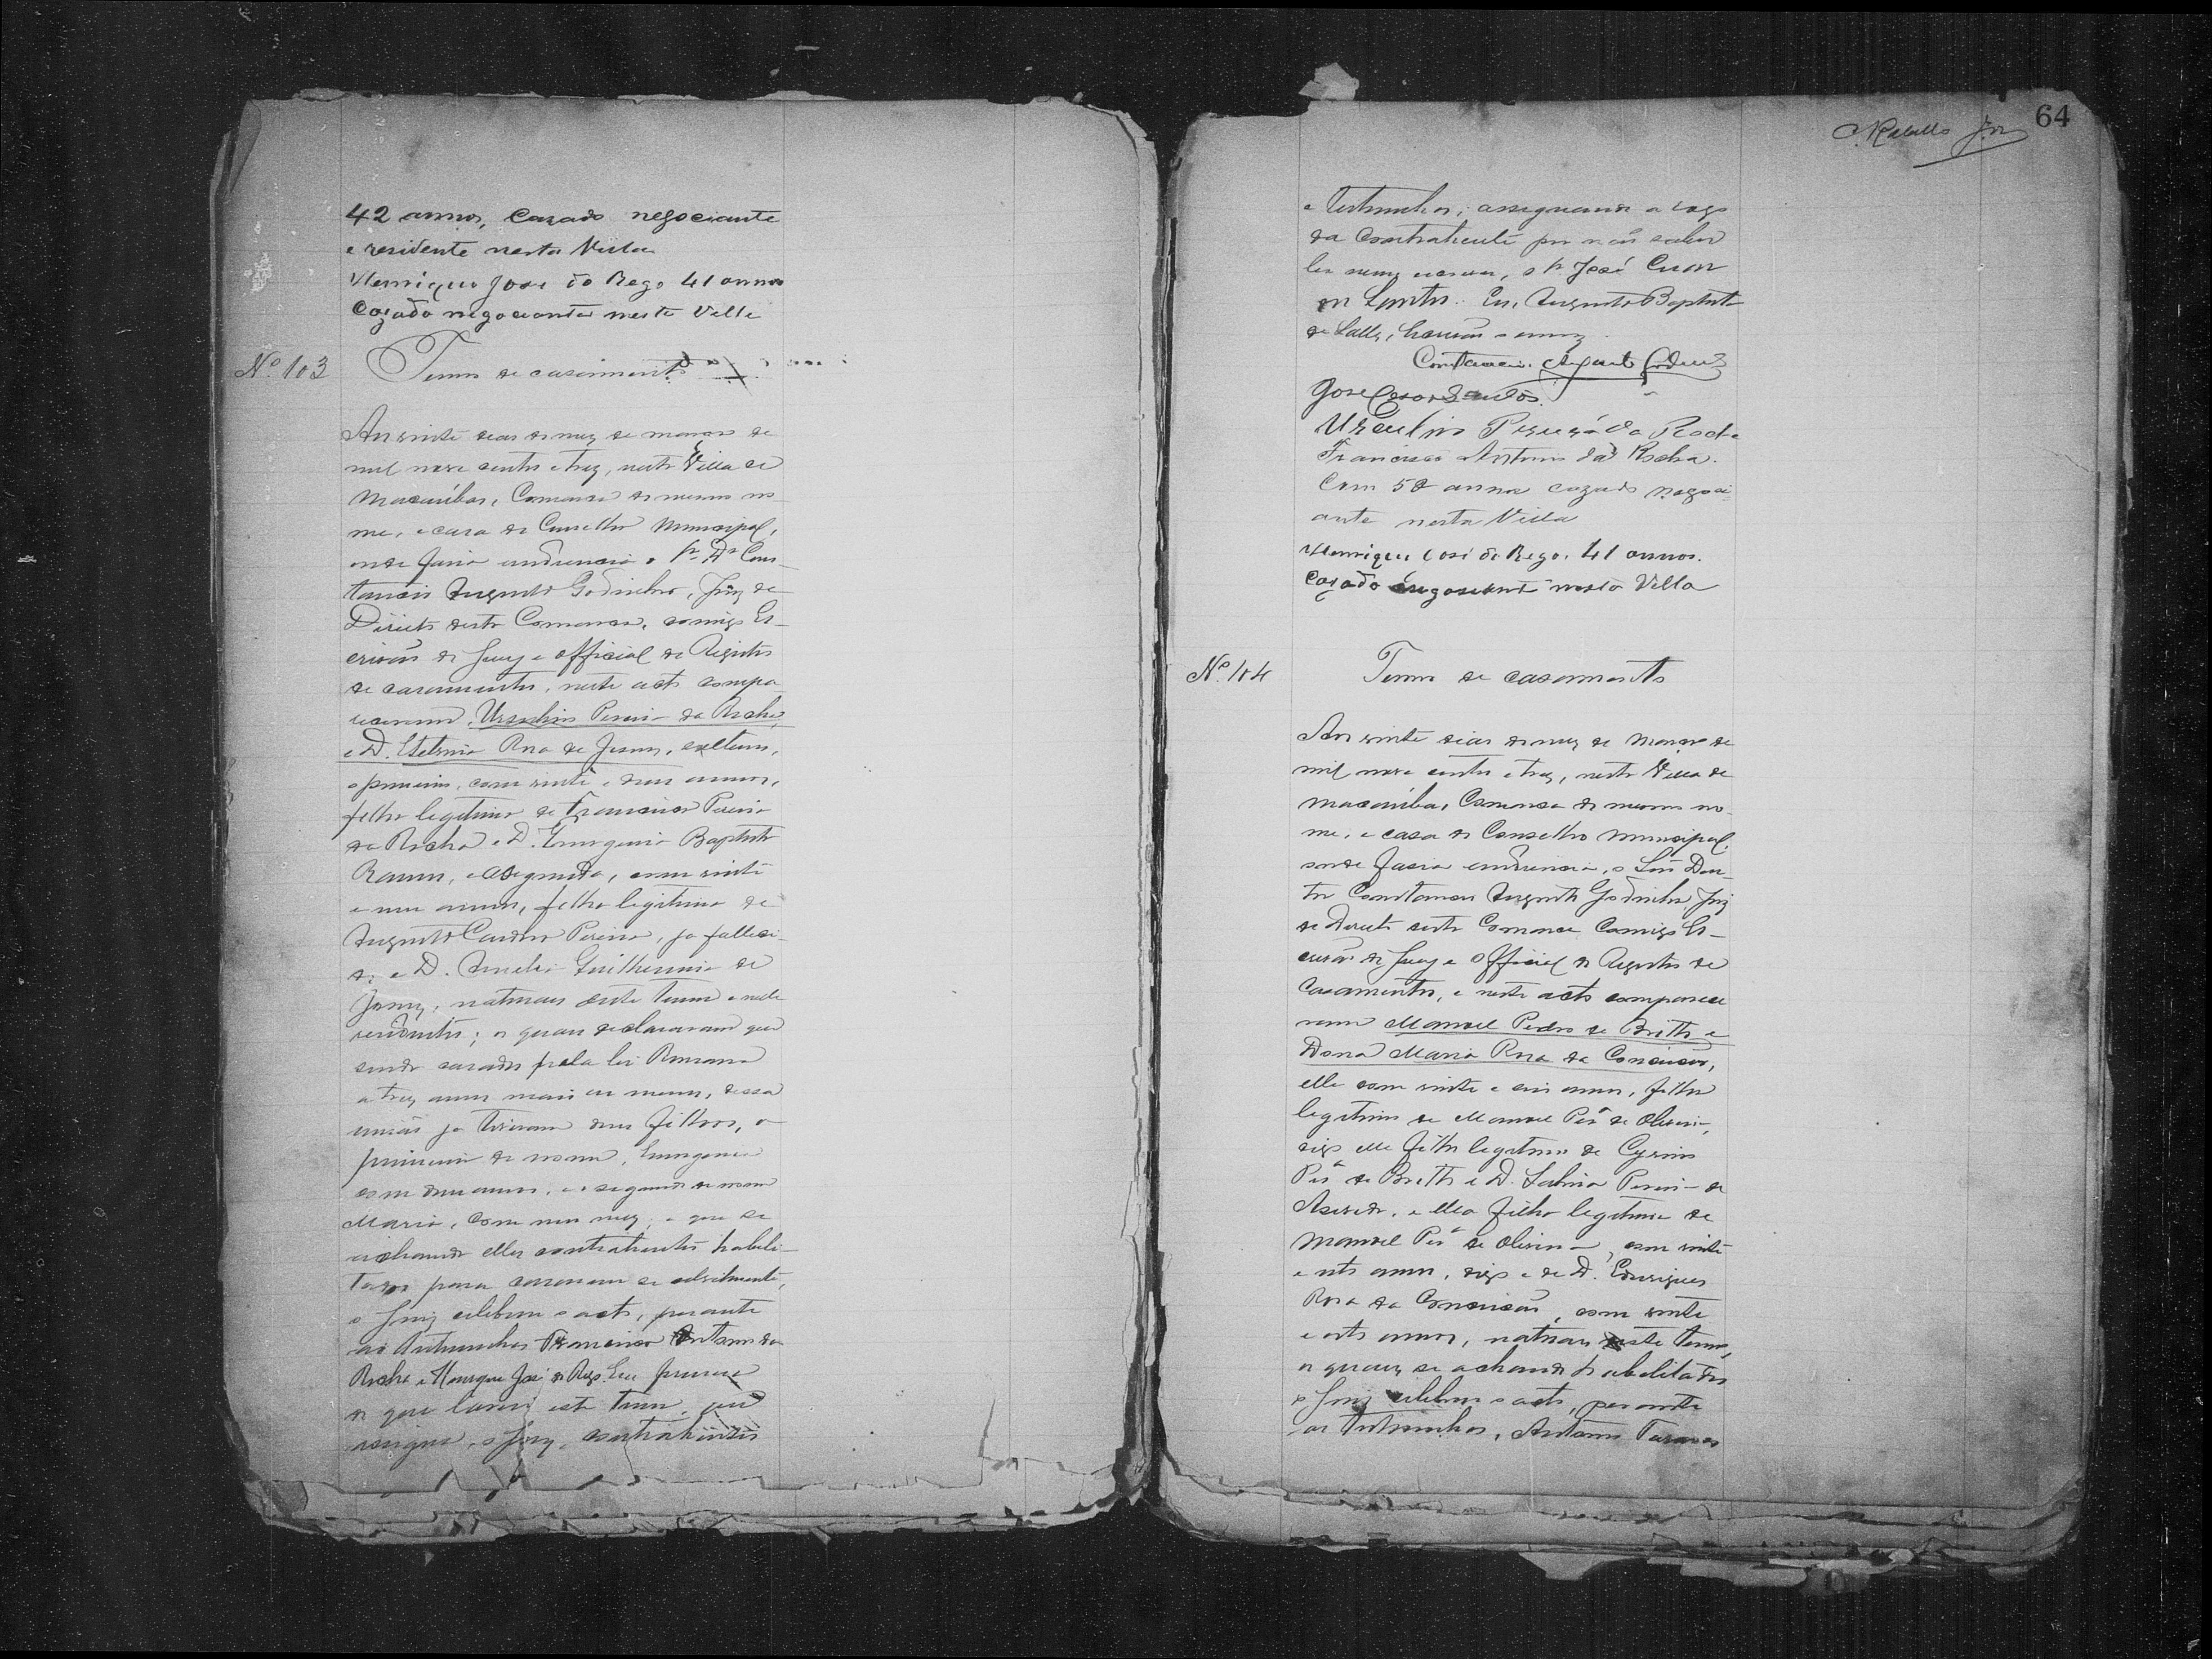 42 annos, Cazado negociante
e residente nesta Villa
Henrique Jose do Rego 41 annos
Cazado negociante nesta Villa
Nº 103 Termo de casamento
Aos vinte dias do mez de março de
mil nove centos e trez, nesta Villa de
Macaúbas, Comarca do mesmo no-
me, e casa do Conselho Municipal,
onde fazia audiencia o Sr. Dr Cons-
tancio Augusto Godinho, Juiz de
Direito desta Comarca, comigo Es-
crivão do Jury e official do Registro
de casamentos, neste acto compa-
receram, Ursulino Pereira da Rocha,
e D. Etelvina Rosa de Jesus, solteiros,
o primeiro, com vinte e dous annos,
filho legitimo de Francisco Pereira
da Rocha e D. Baptista
Ramos, e a segunda, com vinte
e um annos, filha legitima de
Augusto Pereira, ja falleci-
do e D. Amelia Guilhermina de
Jesus, naturaes deste termo e nelle
residentes; os quaes declararam que
sendo casados pela lei Romana
a trez annos mais ou menos, dessa
união ja tiveram dous filhos, o
primeiro de nome,
com dous annos, e o segundo de nome
Maria, com um mez, e que se
achando elles contrahentes habili-
tados para casarem se civilmente,
o Juiz celebrou o acto, perante
as testemunhas Francisco Antonio da
Rocha e Henrique José do Rego. Eu
do que lavrei este termo, que
assigna, o Juiz, contrahentes
64
e testemunhas, assignando a rogo
da contrahente por não saber
ler nem escrever, o Sr. José Cesar
dos Santos. Eu, Augusto Baptista
de Salles, Escrivão o escrevy
Constancio Augusto Godinho
Jose Cesar dos Santos
Urculino Pereira da Rocha
Francisco Antonio da Rocha.
Com 52 annos cazado negoci-
ante nesta Villa
Henrique José do Rego. 41 annos.
Cazado negociante nesta Villa
Nº 104 Termo de casamento
Aos vinte dias do mez de Março de
mil nove centos e trez, nesta Villa de
Macaúbas, Comarca do mesmo no-
me, e casa do Conselho Municipal,
onde fazia audiencia, o Snr Dou-
tor Constancio Augusto Godinho, Juiz
de Direito desta Comarca Comigo Es-
crivão do Jury e Official do Registro de
Casamentos, e neste acto comparece-
ram Manoel Pedro de Britto e
Dona Maria Rosa da Conceição,
elle com vinte e seis annos, filho
legitimo de Manoel Perª de Oliveira,
digo elle filho legitimo de Cyrino
Perª de Britto e D. Sabina Pereira de
Azevedo, e ella filha legitima de
Manoel Perª de Oliveira, com vinte
e oito annos, digo e de D.
Rosa da Conceição, com vinte
e oito annos, naturaes deste termo,
os quaes se achando habilitados
o Juiz celebrou o acto, perante
as testemunhas, Antonio Tavares